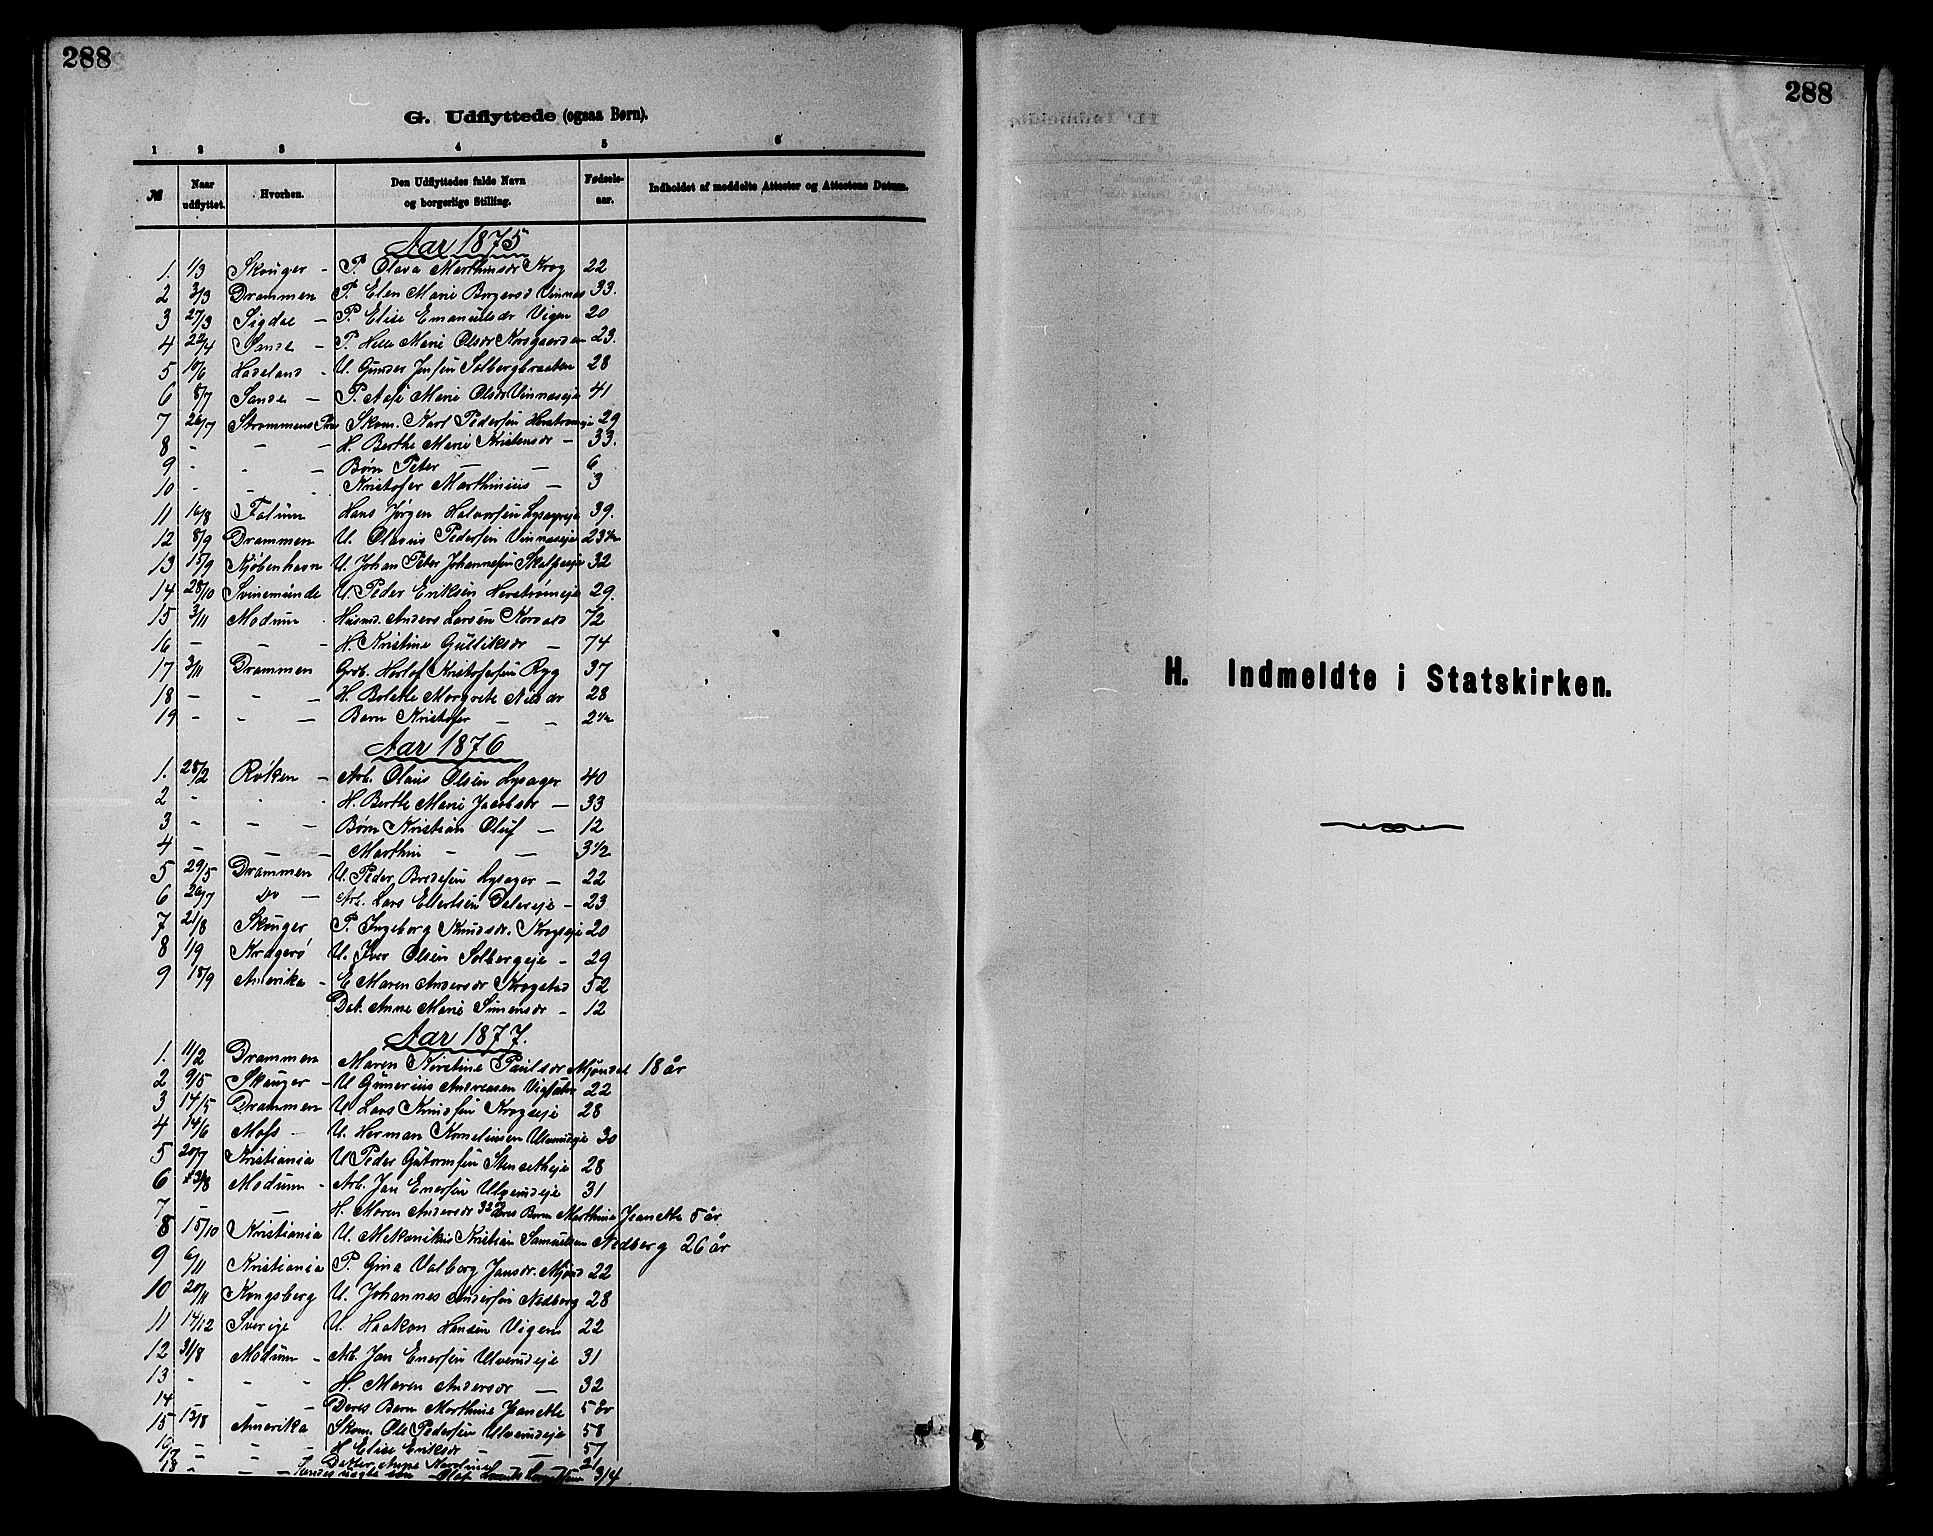 288
G. Udflyttede (ogsaa Børn).
1 2 3 4 5 6
№ Naar udflyttet. Hvorhen. Den Udflyttedes fulde Navn og borgerlige Stilling. Fødsels-aar. Indholdet af meddelte Attester og Attestens Datum.
Aar 1875
1. 1/3 Skouger - P. Olava Marthinsdr Krog 22
2 3/3 Drammen P. Elen Marie Borgersd Vinnæs 33.
3 27/3 Sigdal - P. Elise Emanuelsdr Vigen 20
4 22/4 Sande - P. Helle Marie Olsdr Korsgaarden 23.
5 10/6 Hadeland - U. Gunder Jensen Solbergbraaten 28
6 8/7 Sande - P. Marie Olsdr Vinnæseje 41
7 26/7 Strømmens Skom. Karl Pedersen 29
8 - - - H. Berthe Marie Kristensdr - 33.
9 - - - Børn Peter - - 6
10 - - - Kristofer Marthinius - 3
11 16/8 Hans Jørgen Halvorsen 39.
12 8/9 Drammen U. Olavus Pedersen Vinnæseje 23 1/2
13 15/9 Kjøbenhavn U. Johan Peter Johannesen 32
14 28/10 Svinemünde U. Peder Eriksen Herstrømeje 29.
15 3/11 Modum Husmd Anders Larsen Korvald 72
16 - - - H. Kristine Gulliksdr - 74
17 3/11 Drammen Kristofersen Ryg 37
18 - - - H. Bolette Margrete Nilsdr 28
19 - - - Barn Kristofer - - 2 1/2
Aar 1876
1. 28/2 Røken - Arb. Olaus Olsen Lysager 40
2 - - - H. Berthe Marie Jacobsdr - 33
3 - - - Børn Kristian Oluf - 12
4 - - - Marthin - - 3 1/2
5 29/5 Drammen U. Peder Bredesen Lysager - 22
6 26/7 Do - Arb. Lars Ellertsen Daleeje - 23
7 21/8 Skouger P. Ingeborg Knudsdr. Krogseje 20
8 1/9 Kragerø U. Iver Olsen Solbergeje - 29
9 15/9 Amerika - E Maren Andersdr Krogstad 52
Dat. Anne Marie Simensdr - 12
Aar 1877.
1. 11/2 Drammen Maren Kirstine Paulsdr Mjøndal 18 år
2 9/5 Skouger - U Gunerius Andreasen 22
3 14/5 Drammen U Lars Knudsen Krogseje 28
4 14/6 Moss - U. Herman Kornelinsen Ulverudeje 30
5 20/7 Kristiania U Peder Gutormsen Stensetheje 28
6 31/8 Modum - Arb. Jan Enersen Ulverudeje 31
7 - - H. Maren Andersdr 32 Deres Barn Marthine Jeanette 5 år
8 15/10 Kristiania U. Mekanikus Kristian Samuelsen Nedberg 26 år
9 6/11 Kristiania P. Gina Valborg Jansdr. Mjønd 22
10 20/11 Kongsberg U. Johannes Andersen Nedberg 28
11 14/12 Sverige U. Haakon Hansen Vigen 22
12 31/8 Modum - Arb. Jan Enersen Ulverudeje 31
13 - - - H. Maren Andersdr - 32
14 - - - Deres Barn Marthine Jeanette 5 år
15 13/8 Amerika Skom. Ole Pedersen Ulverudeje 58
16 - - - H. Elise Eriksdr - - 57
17 - - - Datter Anne 21
18 - - - Olaf 3/4
288
H. Indmeldte i Statskirken.